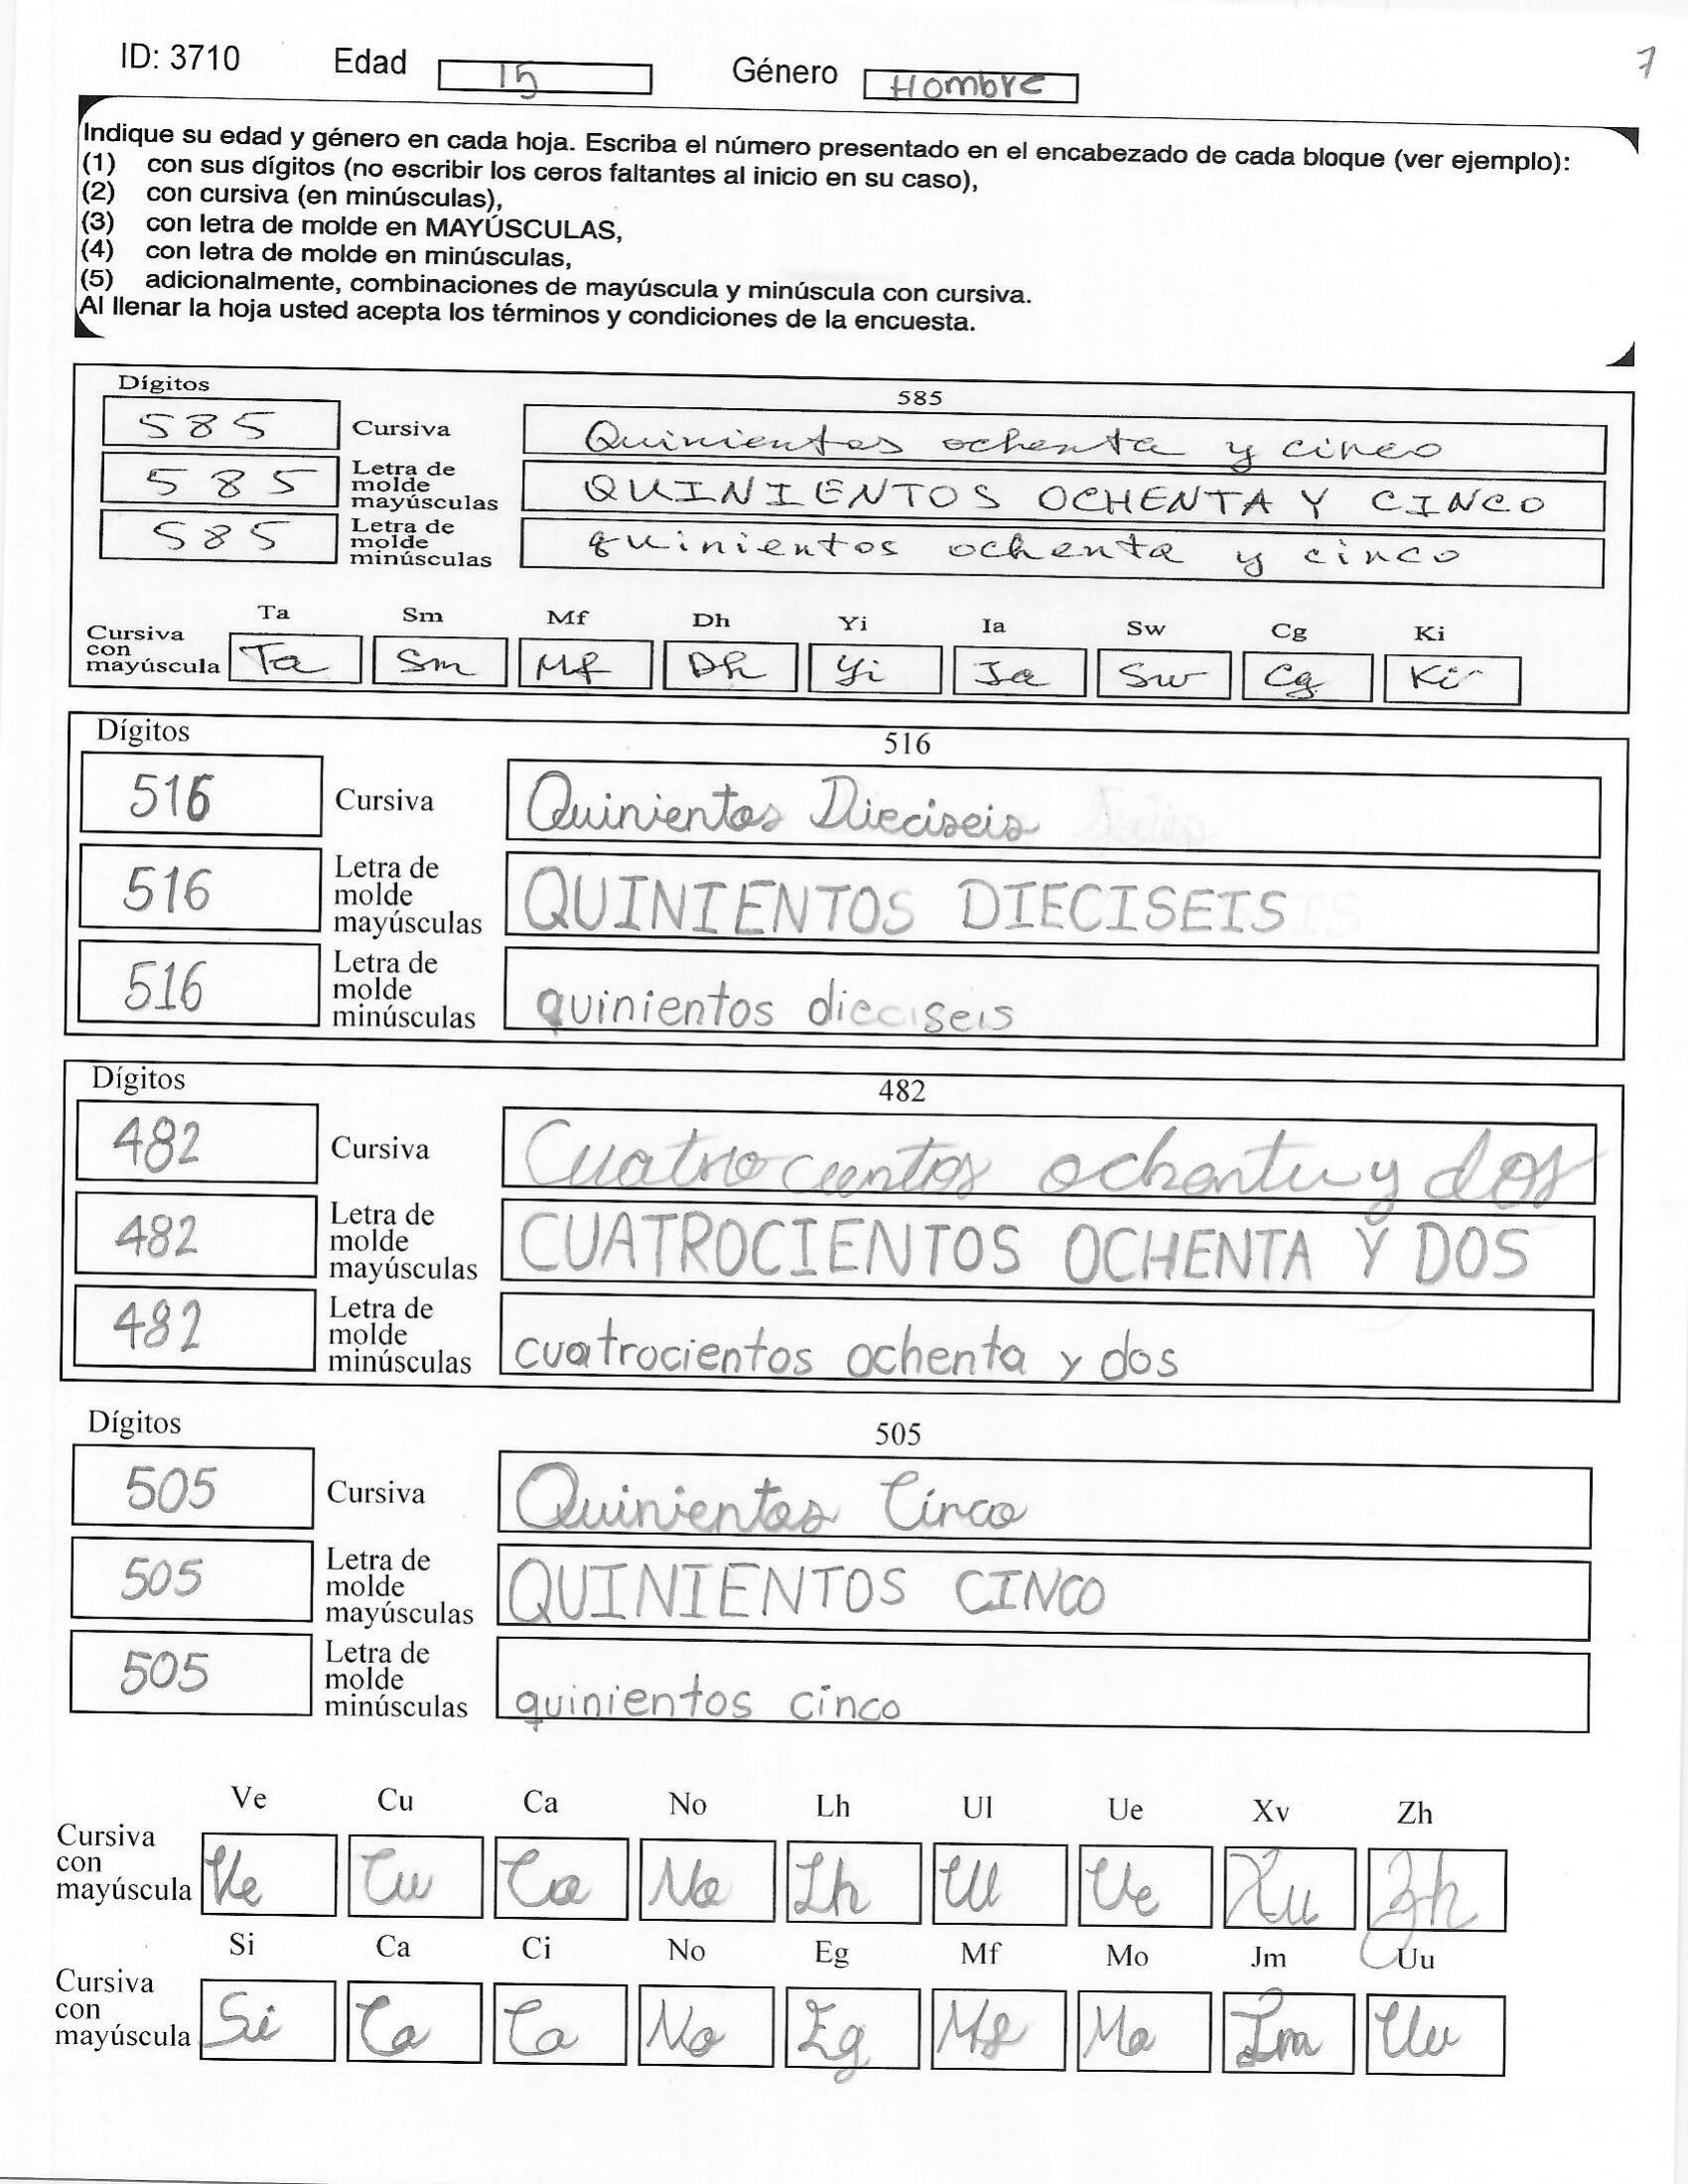 ID: 3710 Edad 15 Género Hombre 7
Indique su edad y género en cada hoja. Escriba el número presentado en el encabezado de cada bloque (ver ejemplo):
(1) con sus dígitos (no escribir los ceros faltantes al inicio en su caso),
(2) con cursiva (en minúsculas),
(3) con letra de molde en MAYÚSCULAS,
(4) con letra de molde en minúsculas,
(5) adicionalmente, combinaciones de mayúscula y minúscula con cursiva.
Al llenar la hoja usted acepta los términos y condiciones de la encuesta.
Dígitos 585
585 Cursiva Quinientos ochenta y cinco
585 Letra de molde mayúsculas QUINIENTOS OCHENTA Y CINCO
585 Letra de molde minúsculas quinientos ochenta y cinco
Ta Sm Mf Dh Yi Ia Sw Cg Ki
Cursiva con mayúscula Ta Sm Mf Dh Yi Ia Sw Cg Ki
Dígitos 516
516 Cursiva Quinientos Dieciseis
516 Letra de molde mayúsculas QUINIENTOS DIECISEIS
516 Letra de molde minúsculas quinientos dieciseis
Dígitos 482
482 Cursiva Cuatrocientos ochenta y dos
482 Letra de molde mayúsculas CUATROCIENTOS OCHENTA Y DOS
482 Letra de molde minúsculas cuatrocientos ochenta y dos
Dígitos 505
505 Cursiva Quinientos Cinco
505 Letra de molde mayúsculas QUINIENTOS CINCO
505 Letra de molde minúsculas quinientos cinco
Ve Cu Ca No Lh Ul Ue Xv Zh
Cursiva con mayúscula Ve Cu Ca No Lh Ul Ue Xu Zh
Si Ca Ci No Eg Mf Mo Jm Uu
Cursiva con mayúscula Si Ca Ca No Eg Mf Mo Jm Uu